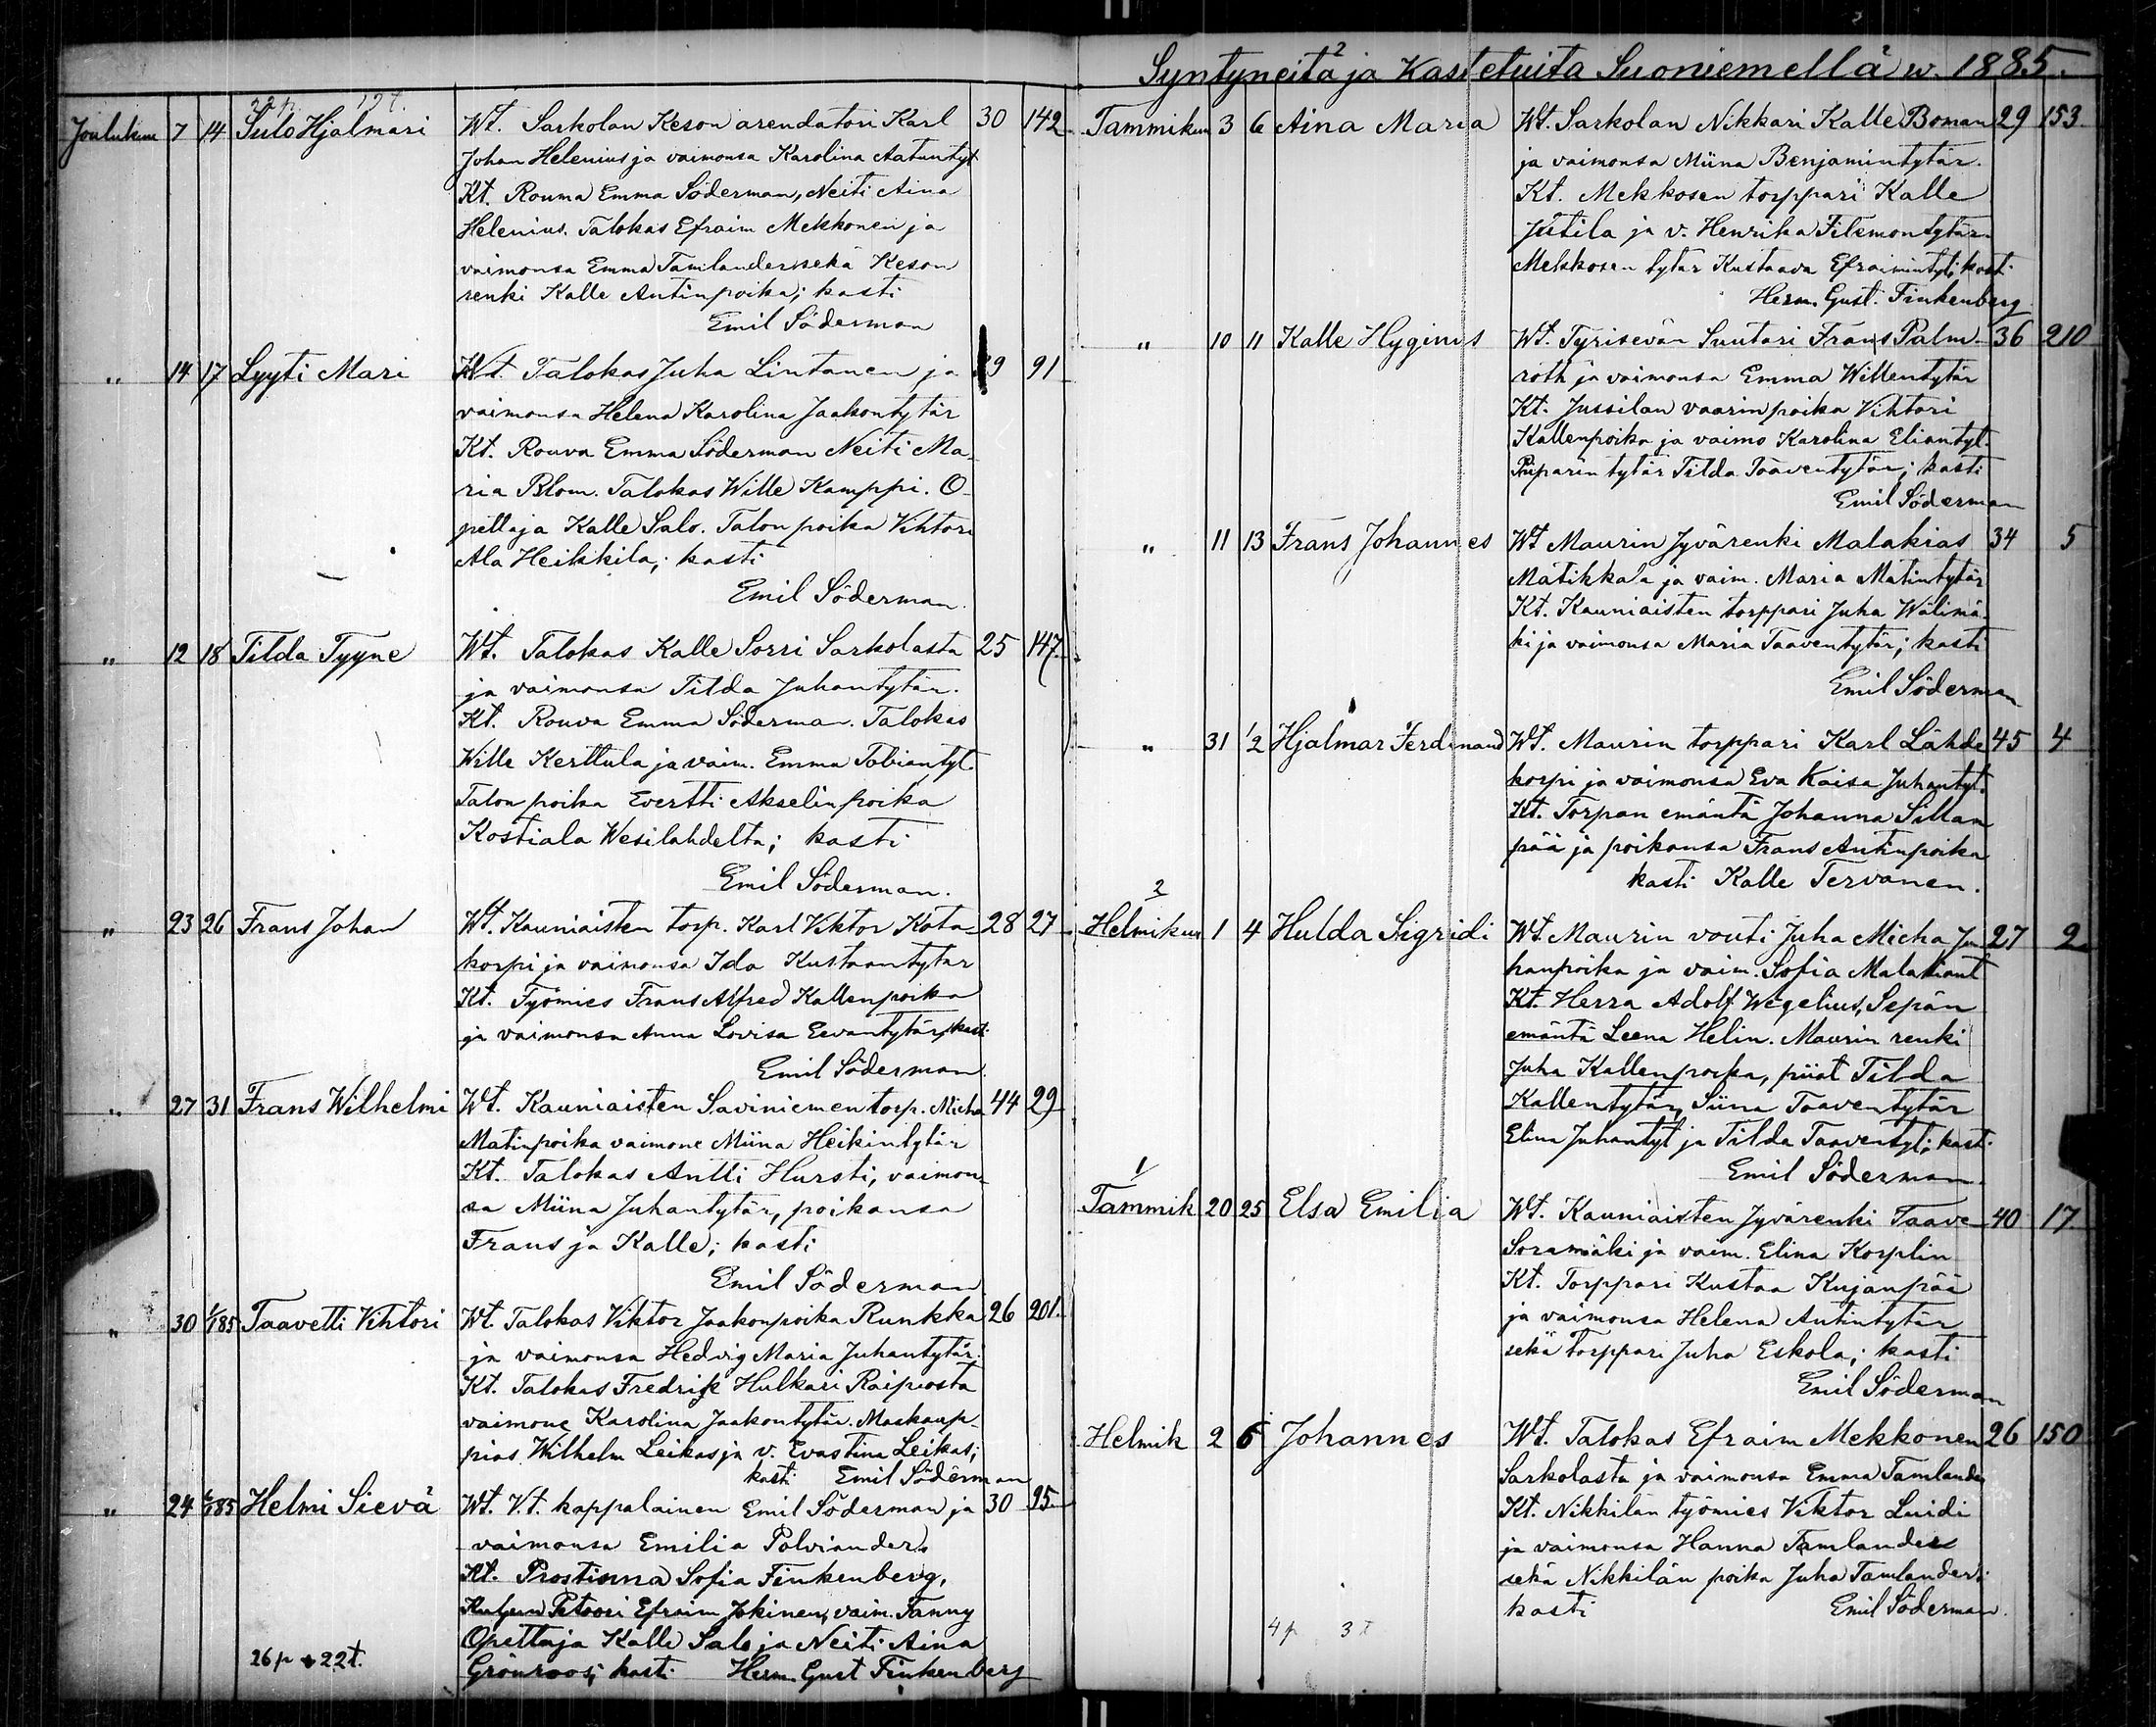 22 p. 19 t.
Joulukuu 7 14 Sulo Hjalmari Wt. Sarkolan Keson arendatori Karl 30 142
Johan Helenius ja vaimonsa Karolina Aatuntyt.
Kt. Rouwa Emma Söderman, Neiti Aina
Helenius. Talokas Efraim Mekkonen ja
vaimonsa Emma Tamlander sekä Keson
renki Kalle Antinpoika; kasti
Emil Söderman
" 14 17 Lyyti Mari Wt. Talokas Juha Lintanen ja 39 91
vaimonsa Helena Karolina Jaakontytär
Kt. Rouva Emma Söderman Neiti Ma-
ria Blom. Talokas Wille Kamppi. O-
pettaja Kalle Salo. Talon poika Vihtori
Ala Heikkila; kasti
Emil Söderman.
" 12 18 Tilda Tyyne Wt. Talokas Kalle Sorri Sarkolasta 25 147
ja vaimonsa Tilda Juhantytär.
Kt. Rouva Emma Söderman. Talokas
Wille Kerttula ja vaim. Emma Tobiantyt.
Talon poika Evertti Akselinpoika
Kostiala Wesilahdelta; kasti
Emil Söderman.
" 23 26 Frans Johan Wt. Kauniaisten torp. Karl Viktor Kota- 28 27
korpi ja vaimonsa Ida Kustaantytar
Kt. Työmies Frans Alfred Kallenpoika
ja vaimonsa Anna Lovisa Eevantytär; kasti
Emil Söderman.
" 27 31 Frans Wilhelmi Wt. Kauniaisten Saviniemen torp. Micha 44 29
Matinpoika vaimone Miina Heikintytär
Kt. Talokas Antti Hursti, vaimon-
sa Miina Juhantytär, poikansa
Frans ja Kalle; kasti
Emil Söderman
" 30 1/1 85 Taavetti Vihtori Wt. Talokas Viktor Jaakonpoika Runkka 26 201.
ja vaimonsa Hedvig Maria Juhantytär.
Kt. Talokas Fredrik Hulkari Raipiosta
vaimone Karolina Jaakontytär. Maakaup-
pias Wilhelm Leikas ja v. Evastina Leikas;
kasti Emil Söderman
" 24 6/1 85 Helmi Sievä Wt. V.t. kappalainen Emil Söderman ja 30 95
vaimonsa Emilia Polviander.
Kt. Prostinna Sofia Finkenberg,
Petoori Efraim Jokinen, vaim. Fanny
Opettaja Kalle Salo ja Neiti Aina
Grönroos; kasti Herm. Gust Finkenberg
26 p 22 t.
Syntyneitä ja Kastetuita Suoniemellä w. 1885.
Tammikuu 3 6 Aina Maria Wt. Sarkolan Nikkari Kalle Boman 29 153
ja vaimonsa Miina Benjamintytär.
Kt. Mekkosen torppari Kalle
Jütila ja v. Henrika Filemontytär
Mekkosen tytär Kustaava Efraimintyt; kasti
Herm. Gust. Finkenberg
" 10 11 Kalle Hyginus Wt. Tyrisevän Suutari Frans Palm- 36 210
roth ja vaimonsa Emma Willentytär
Kt. Jussilan vaarinpoika Vihtori
Kallenpoika ja vaimo Karolina Eliantyt.
Piiparin tytär Tilda Taaventytär; kasti
Emil Söderman
" 11 13 Frans Johannes Wt Maurin Jyvärenki Malakias 34 5
Mätikkala ja vaim. Maria Matintytär
Kt. Kauniaisten torppari Juha Wälimä-
ki ja vaimonsa Maria Taaventytär; kasti
Emil Söderman
" 31 1/2 Hjalmar Ferdinand Wt. Maurin torppari Karl Lähde 45 4
korpi ja vaimonsa Eva Kaisa Juhantyt.
Kt. Torpan emäntä Johanna Sillam
pää ja poikansa Frans Antinpoika
kasti Kalle Tervanen.
2
Helmikuu 1 4 Hulda Sigridi Wt. Maurin vouti Juha Micha Ju 27 2
hanpoika ja vaim. Sofia Malakiant
Kt. Herra Adolf Wegelius, Sepän
emäntä Leena Helin. Maurin renki
Juha Kallenpoika, piiat Tilda
Kallentytär, Siina Taaventytär
Elina Juhantyt ja Tilda Taaventyt; kasti
Emil Söderman.
1
Tammik 20 25 Elsa Emilia Wt. Kauniaisten Jyvärenki Taave 40 17
Soramäki ja vaim. Elina Korplin
Kt. Torppari Kustaa Kujanpää
ja vaimonsa Helena Antintytär
sekä torppari Juha Eskola; kasti
Emil Söderman
Helmik 2 6 Johannes Wt. Talokas Efraim Mekkonen 26 150
Sarkolasta ja vaimonsa Emma Tamlander
Kt. Nikkilän työmies Viktor Luidi
ja vaimonsa Hanna Tamlander
sekä Nikkilän poika Juha Tamlander;
kasti Emil Söderman.
4 p 3 t